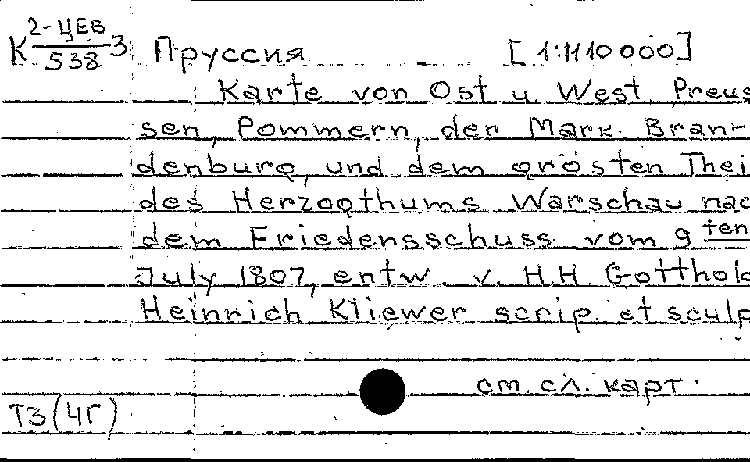 К 2-ЦЕВ/538 3 Пруссия [1:1110000]
Karte von Ost u West Preus
sen, Pommern, der Mark Bran-
denburg, und dem grösten Thei
des Herzogthums Warschau nac
dem Friedensschuss vom 9 ten
July 1807, entw. v. H.H Gotthold
Heinrich Kliewer scrip. et sculp
см. сл. карт.
ТЗ (4Г)